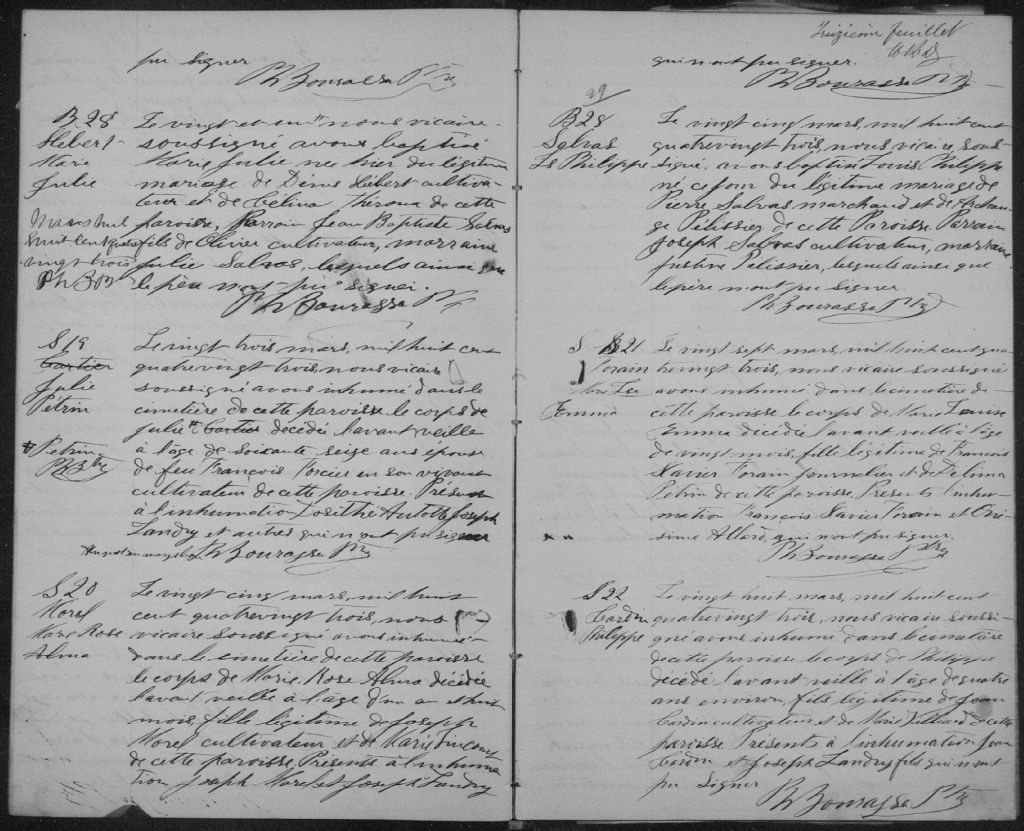 pu signer
Ph Bourassa Ptre
B 28
Hebert
Marie
Julie
Mars mil
huit cent quatre
vingt trois
Ph B Ptr
Le vingt et un # nous vicaire
soussigné avons baptisé
Marie Julie née hier du légitime
mariage de Dénis Hébert cultiva-
teur et de Célina Théroux de cette
paroisse, Parrain Jean Baptiste Salvas
fils de Olivier cultivateur, marraine
Julie Salvas, lesquels ainsi que
le père n'ont pu signer.
Ph Bourassa Ptr
S 19
Cartier
Julie
Petrin
# Petrin
Ph B Ptre
Le vingt trois mars, mil huit cent
quatrevingt trois, nous vicaire
soussigné avons inhumé dans le
cimetière de cette paroisse le corps de
Julie # Cartier décédée l'avant veille
à l'âge de soixante seize ans épouse
de feu François Forcier en son vivant
cultivateur de cette paroisse. Présents
à l'inhumation Losithé Autotte Joseph
Landry et autres qui n'ont pu signer
Ph Bourassa Ptre
S 20
Morel
Marie Rose
Alma
Le vingt cinq mars, mil huit
cent quatrevingt trois, nous
vicaire soussigné avons inhumé
dans le cimetière de cette paroisse
le corps de Marie Rose Alma décédée
l'avant veille à l'âge d'un an et huit
mois, fille légitime de Joseph
Morel cultivateur et de Marie
de cette paroisse. Présents à l'inhuma
tion Joseph Morel et Joseph Landry
Treizième feuillet
qui n'ont pu signer.
Ph Bourassa Ptre
29
B 28
Salvas
Ls Philippe
Le vingt cinq mars, mil huit cent
quatrevingt trois, nous, vicaire, sous-
signé, avons baptisé Louis Philippe
né ce jour du légitime mariage de
Pierre Salvas marchand et de Archan
ge Pelissier de cette Paroisse. Parrain
Joseph Salvas cultivateur, marraine
Justine Pelissier, lesquels ainsi que
le père n'ont pu signer.
Ph Bourassa Ptre
S B 21
Forain
Emma
Le vingt sept mars, mil huit cent qua
trevingt trois, nous vicaire soussigné
avons inhumé dans le cimetière de
cette paroisse le corps de Marie Louise
Emma décédée l'avant veille à l'âge
de vingt mois, fille légitime de François
Xavier Forain journalier et de Delima
Petrin de cette paroisse. Présents l'inhu-
mation François Xavier Forain et Oné
sime Allard, qui n'ont pu signer.
Ph Bourassa Ptre
S 22
Cardin
Philippe
Le vingt huit mars, mil huit cent
quatrevingt trois, nous vicaire soussi-
gné avons inhumé dans le cimetière
de cette paroisse le corps de Philippe
décédé l'avant veille à l'âge de quatre
ans environ, fils légitime de Jean
Cardin cultivateur et de Marie de cette
paroisse. Présents à l'inhumation Jean
Cardin et Joseph Landry fils qui n'ont
pu signer
Ph Bourassa Ptre